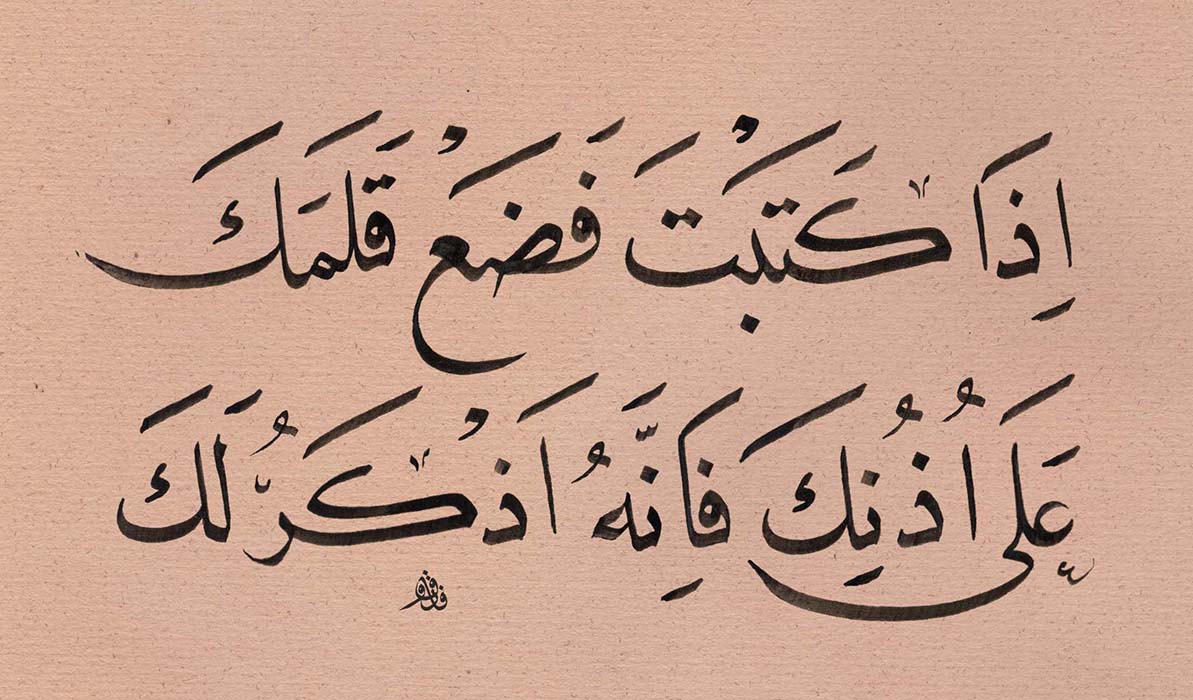 اِذَا كَتَبْتَ فَضَعْ قَلَمَكَ
عَلَى اُذُنِكَ فَاِنَّهُ اَذْكَرُ لَكَ